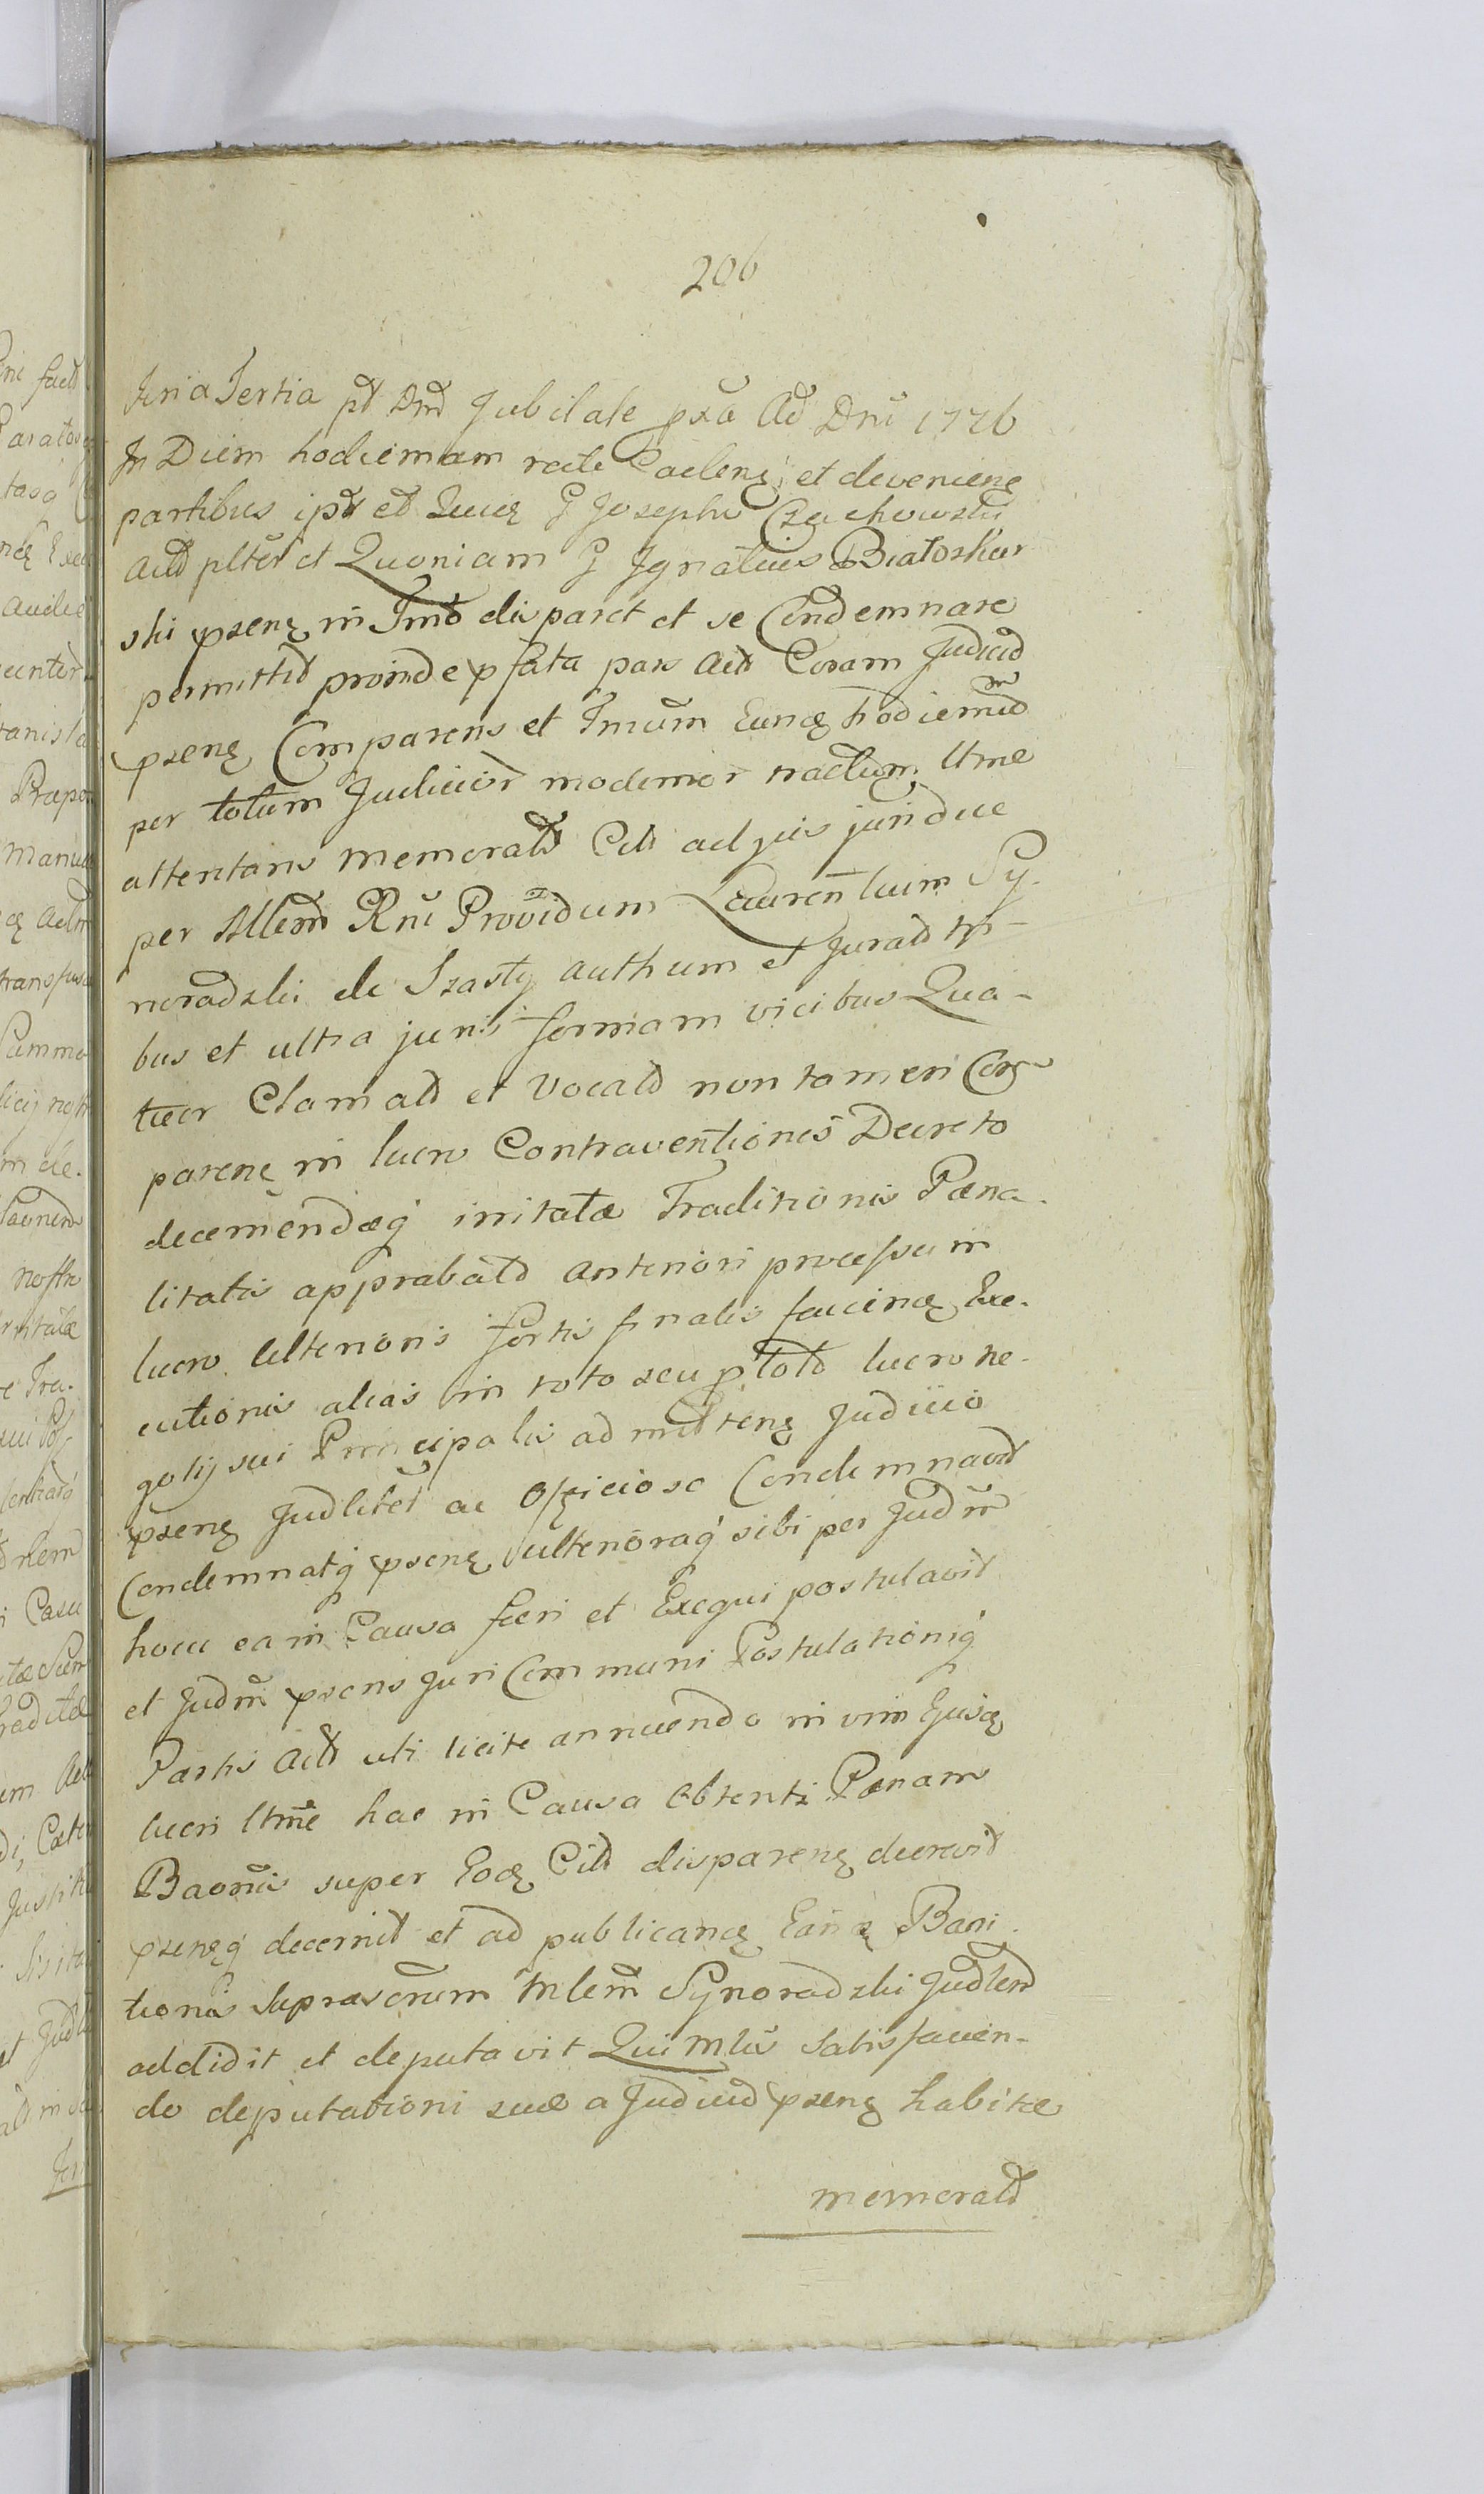 206
Feria Tertia pt Dnd Jubilate pxa Ad Dni 1776
In Diem hodiernam recte Cadenȩ et devenienȩ
partibus ipt et Quia G Josephu Czachowski
Actt plter et Quoniam G Ignatius Białoskur
ski psenȩ in Tmo disparet et se Condemnare
permittit proinde pfata pars Actt Coram Judicio
psenȩ Comparens et Tmum Eunȩ hodiernum
per totum Judicior modernor tractum Ltme
attentans memoratt Citt ad jus juridice
per Mlem Rni Providum Laurentium Sy-
noradzki de Szasty authum et Juratt tri-
bus et ultra juris formam vicibus Qua-
tuor Clamatt et Vocatt non tamen Com
parenȩ in lucro Contraventionis Decreto
decernendæq irritatæ Traditionis Pæna-
litatis approbatt anteriori processu in
lucro Ulterioris fortis finalis faciendȩ Exe-
cutionis alias in toto seu ptott lucro ne-
gotij sui Principalis admittenȩ Judicio
psenȩ Judliter ac Officiose Condemnavit
Condemnatq psenȩ ulterioraq sibi per Judm
hocce ea in Causa fieri et Exequi postulavit
et Judm psens Juri Communi Postulationiq
Partis Actt uti licite annuendo in vim Ejusȩ
lucri ltme hac in Causa Obtenti Pænam
Baonis super Eodȩ Citt disparenȩ decrevit
psenȩq decernit et ad publicandȩ Eandȩ Bani-
tionis suprascrum Mlem Synoradzki Judlem
addidit et deputavit Qui Mlis satisfacien-
do deputationi suæ a Judicio psenȩ habitæ
memoratt